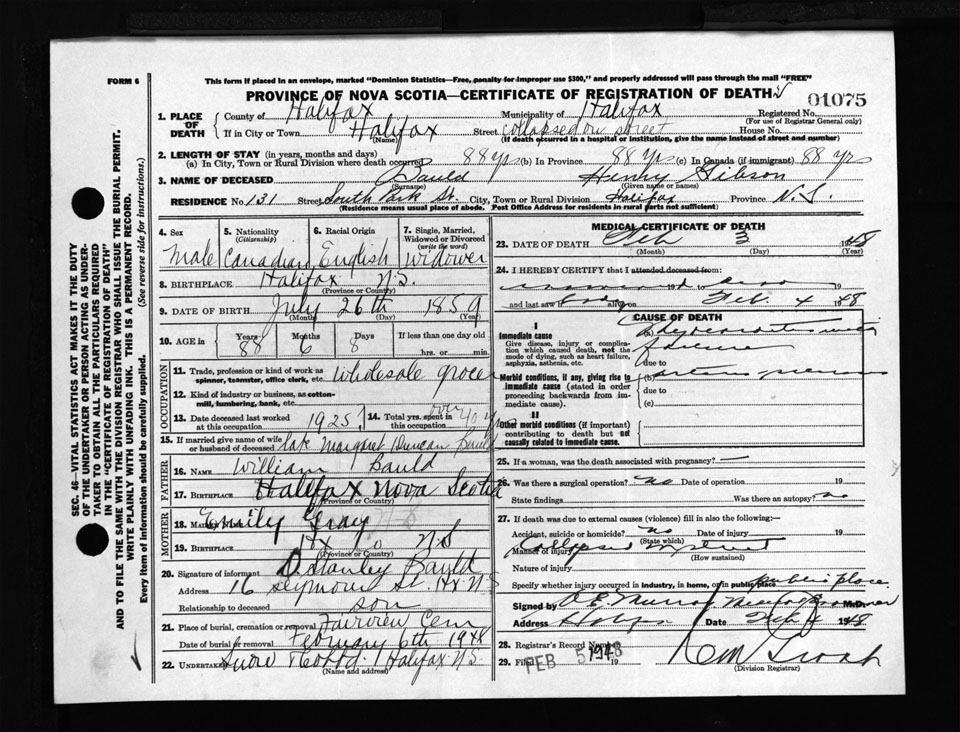 FORM 6
This form if placed in an envelope, marked "Dominion Statistics—Free, penalty for improper use $300," and properly addressed will pass through the mail "FREE"
PROVINCE OF NOVA SCOTIA—CERTIFICATE OF REGISTRATION OF DEATH
01075
1. PLACE OF DEATH
County of Halifax Municipality of Halifax Registered No.
(For use of Registrar General only)
If in City or Town Halifax Street collapsed on street House No.
(Name) (If death occurred in a hospital or institution, give the name instead of street and number)
2. LENGTH OF STAY (in years, months and days)
(a) In City, Town or Rural Division where death occurred 88 yrs (b) In Province 88 Yrs (c) In Canada (if immigrant) 88 yrs
3. NAME OF DECEASED Bauld Henry Gibson
(Surname) (Given name or names)
RESIDENCE No. 131 Street South Park St. City, Town or Rural Division Halifax Province N.S.
(Residence means usual place of abode. Post Office Address for residents in rural parts not sufficient)
4. Sex
Male
5. Nationality
(Citizenship)
Canadian
6. Racial Origin
English
7. Single, Married, Widowed or Divorced
(write the word)
Widower
8. BIRTHPLACE Halifax N.S.
(Province or Country)
9. DATE OF BIRTH July 26th 1859
(Month) (Day) (Year)
10. AGE in
Years Months Days If less than one day old
88 6 8 hrs. or min.
OCCUPATION
11. Trade, profession or kind of work as spinner, teamster, office clerk, etc. Wholesale grocer
12. Kind of industry or business, as cotton-mill, lumbering, bank, etc.
13. Date deceased last worked at this occupation 1925
14. Total yrs. spent in this occupation over 40 yrs
15. If married give name of wife or husband of deceased late Margaret Duncan Bauld
FATHER
16. NAME William Bauld
17. BIRTHPLACE Halifax Nova Scotia
(Province or Country)
MOTHER
18. Emily Gray
19. BIRTHPLACE Hx N.S
(Province or Country)
20. Signature of informant D. Stanley Bauld
Address 16 Seymour St. Hx. N.S
Relationship to deceased son
21. Place of burial, cremation or removal Fairview Cem
Date of burial or removal February 6th 1948
22. UNDERTAKER Snow & Co Ltd. Halifax N.S.
(Name and address)
MEDICAL CERTIFICATE OF DEATH
23. DATE OF DEATH Feb 3 1948
(Month) (Day) (Year)
24. I HEREBY CERTIFY that I attended deceased from:
19
and last saw body alive on Feb. 4 1948
CAUSE OF DEATH
I
Immediate cause
Give disease, injury or complication which caused death, not the mode of dying, such as heart failure, asphyxia, asthenia, etc.
(a)
due to
Morbid conditions, if any, giving rise to immediate cause (stated in order proceeding backwards from immediate cause).
(b)
due to
(c)
II
Other morbid conditions (if important) contributing to death but not causally related to immediate cause.
25. If a woman, was the death associated with pregnancy? —
26. Was there a surgical operation? no Date of operation 19
State findings Was there an autopsy? no
27. If death was due to external causes (violence) fill in also the following:—
Accident, suicide or homicide? no Date of injury 19
(State which)
Manner of injury Collapsed on street
(How sustained)
Nature of injury
Specify whether injury occurred in industry, in home, or in public place public place
Signed by M.D.
Address Halifax Date Feb 4 1948
28. Registrar's Record Number
29. Filed FEB 5 1948 19
(Division Registrar)
SEC. 46—VITAL STATISTICS ACT MAKES IT THE DUTY OF THE UNDERTAKER OR PERSON ACTING AS UNDERTAKER TO OBTAIN ALL THE PARTICULARS REQUIRED IN THE "CERTIFICATE OF REGISTRATION OF DEATH" AND TO FILE THE SAME WITH THE DIVISION REGISTRAR WHO SHALL ISSUE THE BURIAL PERMIT.
WRITE PLAINLY WITH UNFADING INK. THIS IS A PERMANENT RECORD.
Every item of information should be carefully supplied. (See reverse side for instructions.)